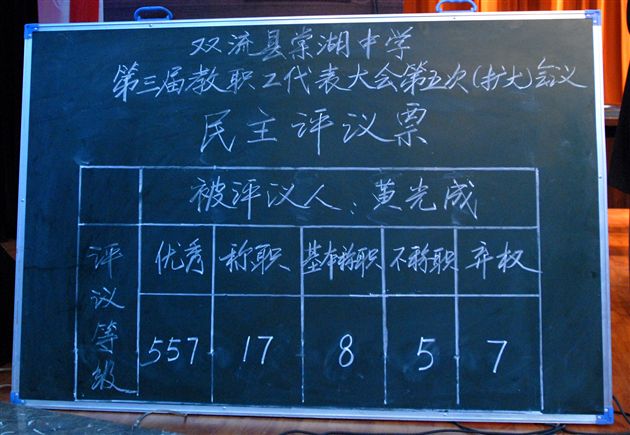 双流县棠湖中学
第三届教职工代表大会第五次(扩大)会议
民主评议票
被评议人:黄光成
评议等级
优秀 称职 基本称职 不称职 弃权
557 17 8 5 7